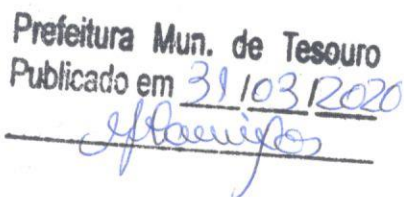 Prefeitura Mun. de Tesouro
Publicado em 31/03/2020